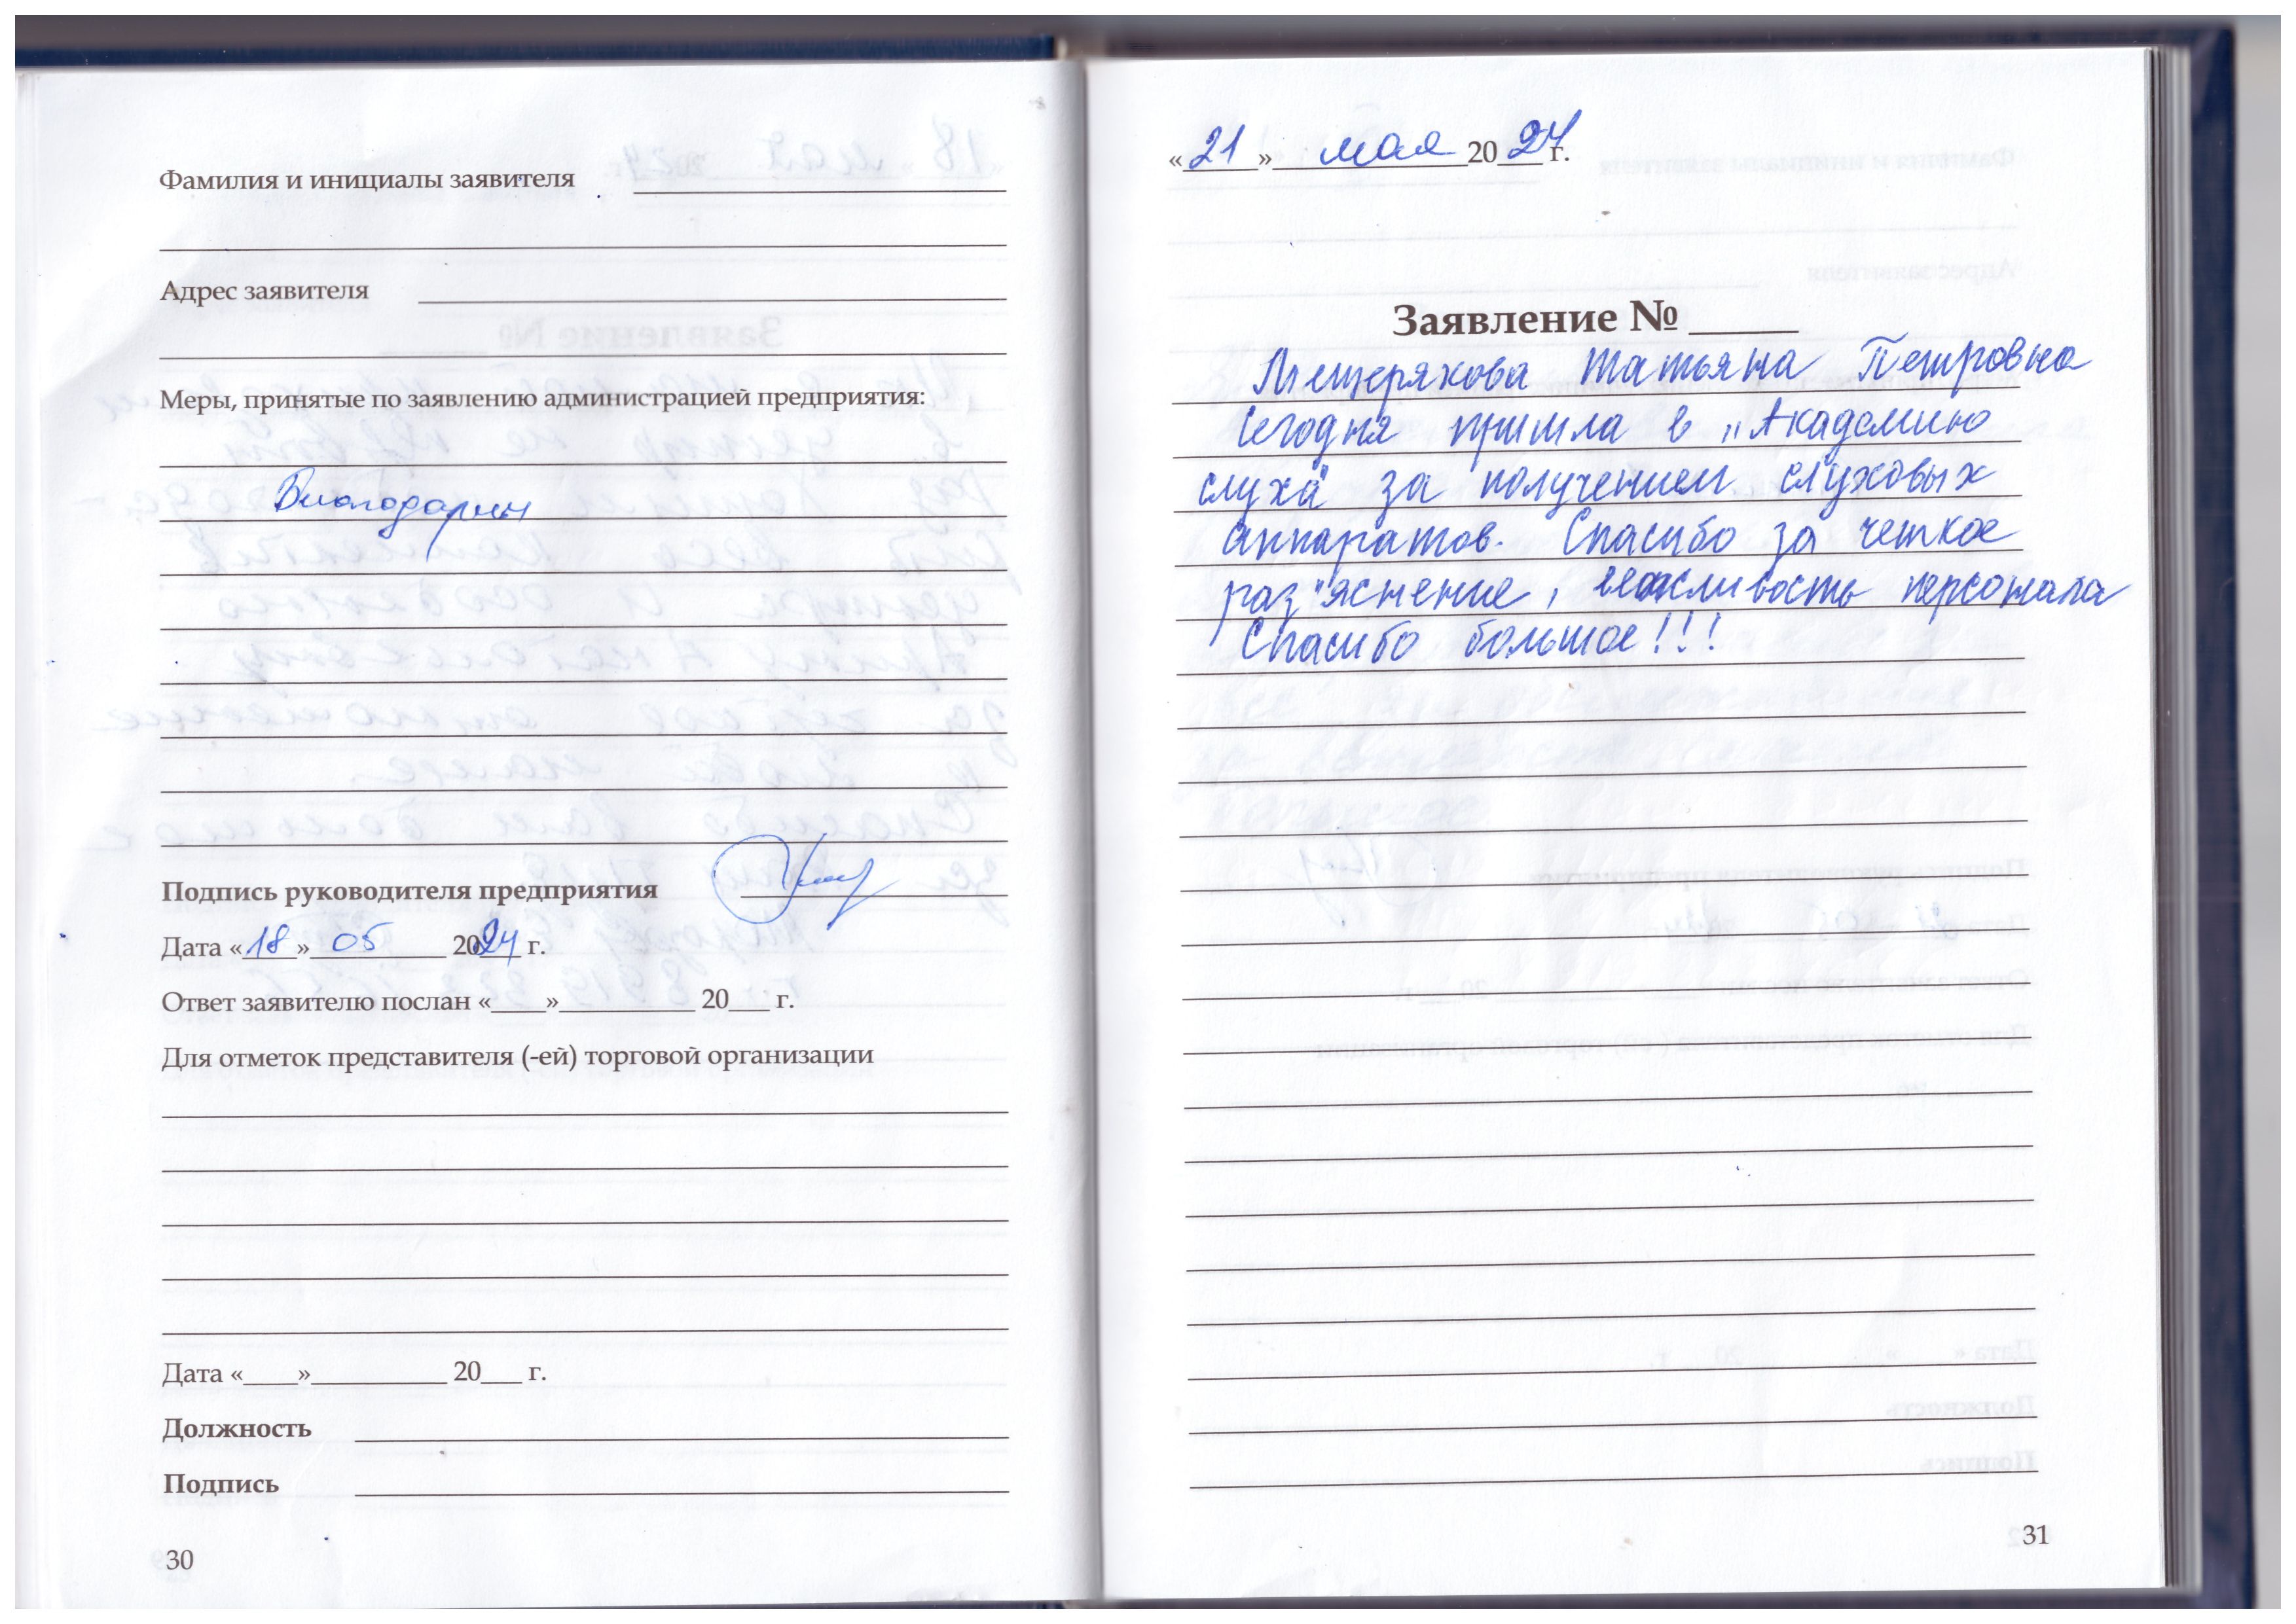 Фамилия и инициалы заявителя
Адрес заявителя
Меры, принятые по заявлению администрацией предприятия:
Благодарим
Подпись руководителя предприятия
Дата «18» 05 2024 г.
Ответ заявителю послан «____»__________ 20___ г.
Для отметок представителя (-ей) торговой организации
Дата «____»__________ 20___ г.
Должность
Подпись
30
«21» мая 2024 г.
Заявление № _____
Мещерякова Татьяна Петровна
Сегодня пришла в „Академию
слуха" за получением слуховых
аппаратов. Спасибо за четкое
раз"яснение, вежливость персонала
Спасибо большое!!!
31